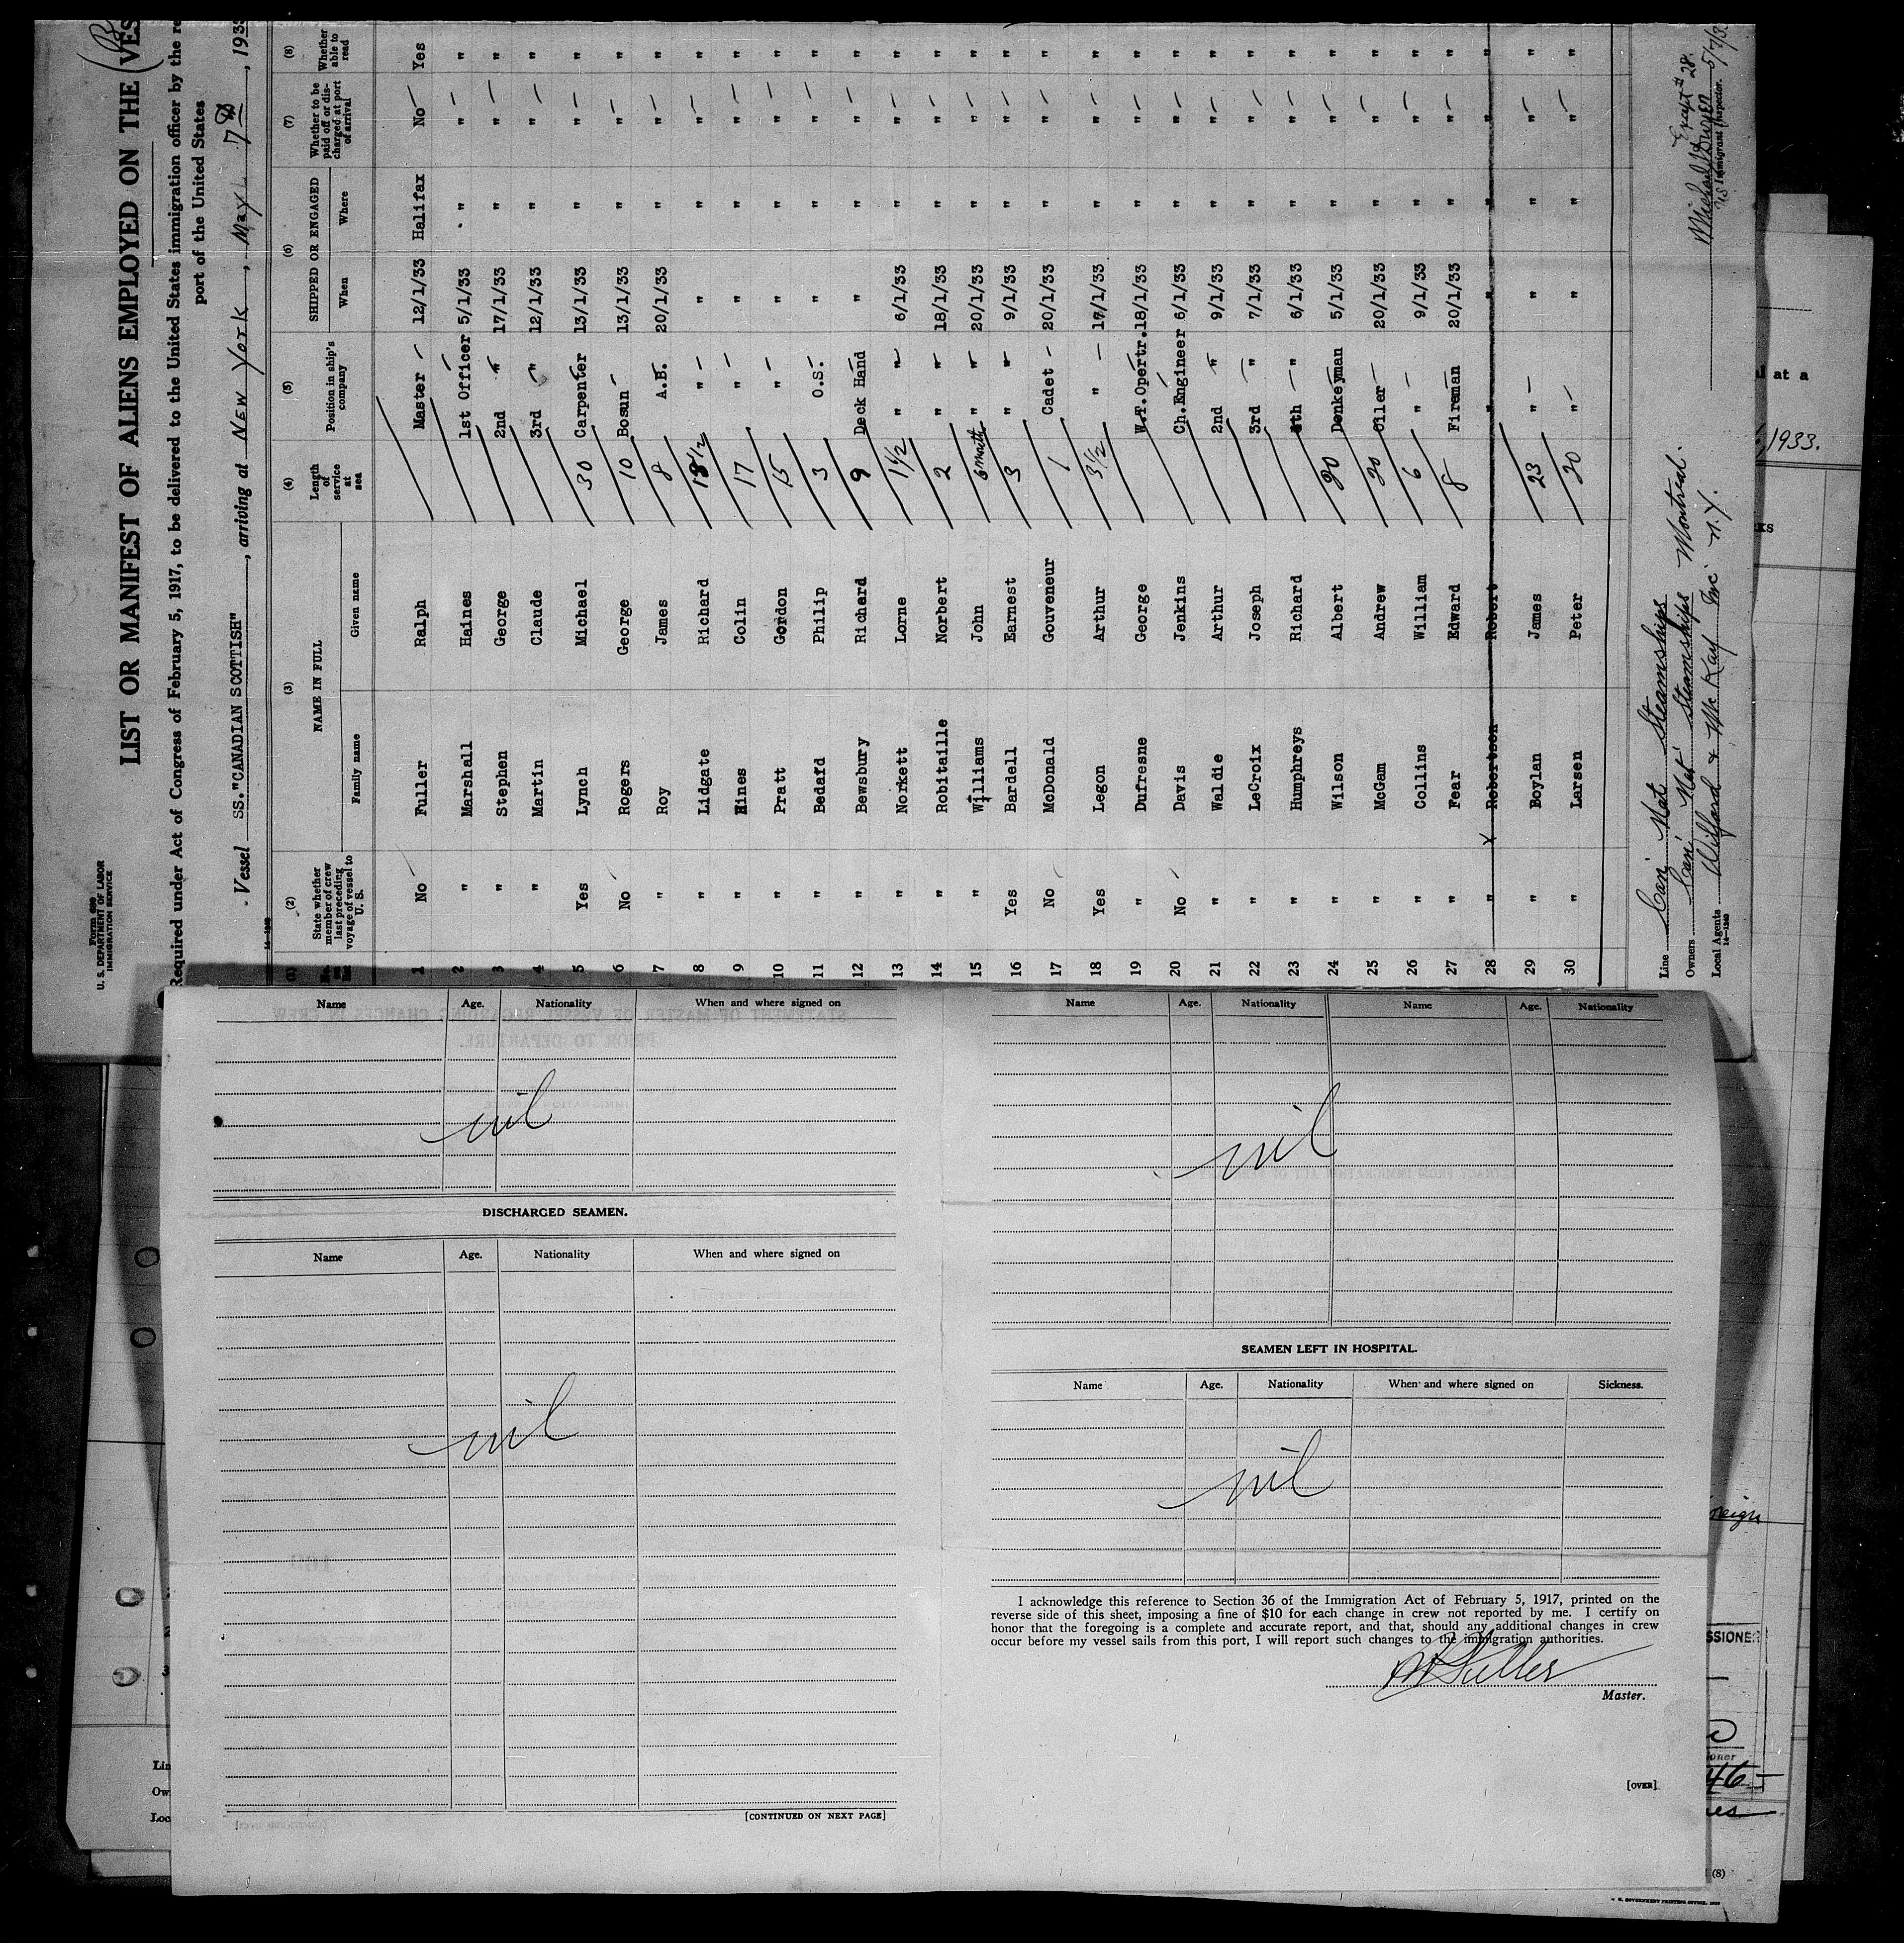 Form 680
U. S. DEPARTMENT OF LABOR
IMMIGRATION SERVICE
LIST OR MANIFEST OF ALIENS EMPLOYED ON THE VES
Required under Act of Congress of February 5, 1917, to be delivered to the United States immigration officer by the re
port of the United States
Vessel SS."CANADIAN SCOTTISH", arriving at New York, May 7th, 193
14—1240
(1) (2) (3) (4) (5) (6) (7) (8)
No. on list
State whether member of crew last preceding voyage of vessel to U. S.
NAME IN FULL
Family name Given name
Length of service at sea
Position in ship's company
SHIPPED OR ENGAGED
When Where
Whether to be paid off or discharged at port of arrival
Whether able to read
1 No Fuller Ralph Master 12/1/33 Halifax No Yes
2 " Marshall Haines 1st Officer 5/1/33 " " "
3 " Stephen George 2nd " 17/1/33 " " "
4 " Martin Claude 3rd " 12/1/33 " " "
5 Yes Lynch Michael 30 Carpenter 13/1/33 " " "
6 No Rogers George 10 Bosun 13/1/33 " " "
7 " Roy James 8 A.B. 20/1/33 " " "
8 " Lidgate Richard 18 1/2 " " " " "
9 " Hines Colin 17 " " " " "
10 " Pratt Gordon 15 " " " " "
11 " Bedard Philip 3 O.S. " " " "
12 " Bewsbury Richard 9 Deck Hand " " " "
13 " Norkett Lorne 1 1/2 " " 6/1/33 " " "
14 " Robitaille Norbert 2 " " 18/1/33 " " "
15 " Williams John 6 months " " 20/1/33 " " "
16 Yes Bardell Earnest 3 " " 9/1/33 " " "
17 No McDonald Gouveneur 1 Cadet 20/1/33 " " "
18 Yes Legon Arthur 3 1/2 " 17/1/33 " " "
19 " Dufresne George W.T.Opertr. 18/1/33 " " "
20 No Davis Jenkins Ch.Engineer 6/1/33 " " "
21 " Waldie Arthur 2nd " 9/1/33 " " "
22 " LeCroix Joseph 3rd " 7/1/33 " " "
23 " Humphreys Richard 4th " 6/1/33 " " "
24 " Wilson Albert 20 Donkeyman 5/1/33 " " "
25 " McGam Andrew 20 Oiler 20/1/33 " " "
26 " Collins William 6 " 9/1/33 " " "
27 " Fear Edward 8 Fireman 20/1/33 " " "
28 " x Robertson Robert " " " " "
29 " Boylan James 23 " " " " "
30 " Larsen Peter 20 " " " " "
Line Can Nat Steamships
Owners Can Nat Steamships Montreal.
Local Agents Wilford & McKay Inc N.Y.
14—1240
Except #28
5/7/3
US Immigrant Inspector.
Name Age. Nationality When and where signed on
nil
DISCHARGED SEAMEN.
Name Age. Nationality When and where signed on
nil
[CONTINUED ON NEXT PAGE]
Name Age. Nationality Name Age. Nationality
nil
SEAMEN LEFT IN HOSPITAL.
Name Age. Nationality When and where signed on Sickness.
nil
I acknowledge this reference to Section 36 of the Immigration Act of February 5, 1917, printed on the
reverse side of this sheet, imposing a fine of $10 for each change in crew not reported by me. I certify on
honor that the foregoing is a complete and accurate report, and that, should any additional changes in crew
occur before my vessel sails from this port, I will report such changes to the immigration authorities.
R Fuller
Master.
[OVER]
l at a
1933.
KS
reign
SSIONER
oner
46
Lin
Ow
Loc
(8)
GOVERNMENT PRINTING OFFICE